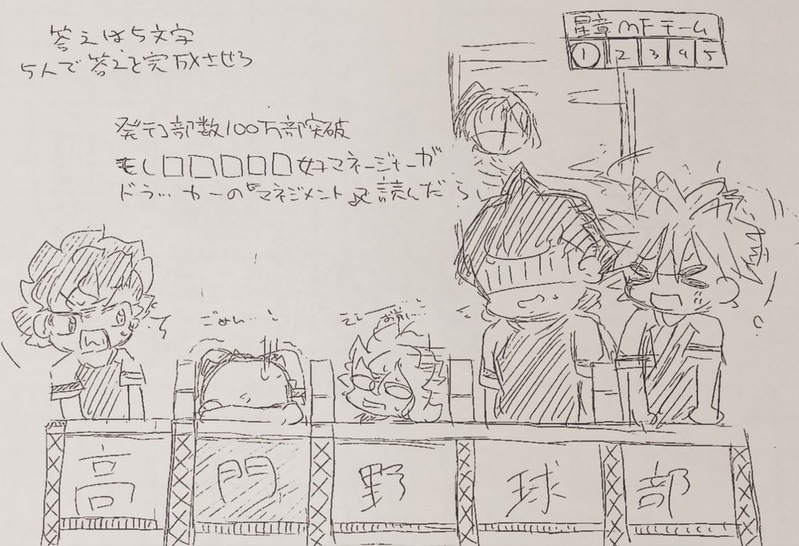 答えは5文字
5人で答えを完成させろ
星章MFチーム
1 2 3 4 5
発行部数100万部突破
もし□□□□□女子マネージャーが
ドラッカーの『マネジメント』を読んだら
ごめん…
高 門 野 球 部